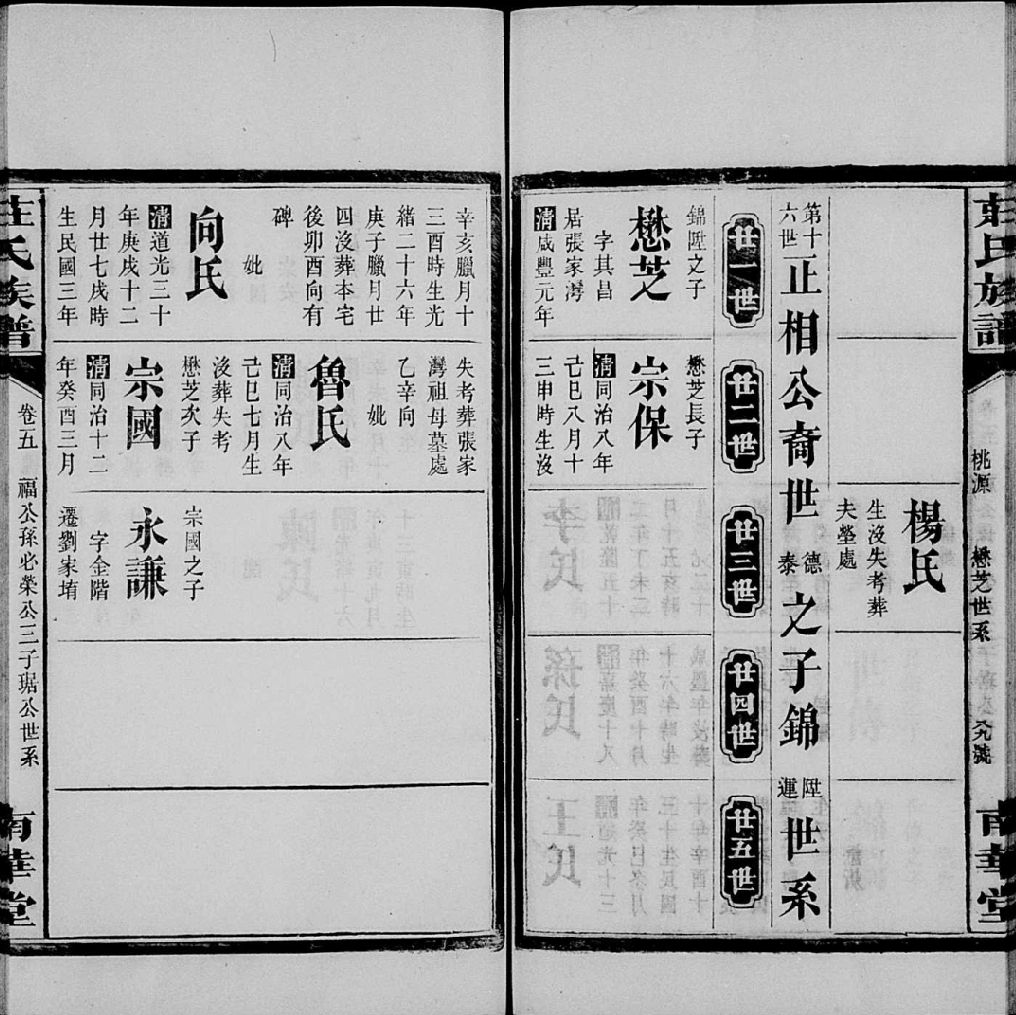 莊氏族譜
桃源
懋芝世系
六九號
南華堂
楊氏
生沒失考葬
夫塋處
第十六世正相公裔世德泰之子錦陞運世系
廿一世
廿二世
廿三世
廿四世
廿五世
錦陞之子
懋芝
字其昌
居張家灣
清咸豐元年
辛亥臘月十
三酉時生光
緒二十六年
庚子臘月廿
四沒葬本宅
後卯酉向有
碑
妣
向氏
清道光三十
年庚戌十二
月廿七戌時
生民國三年
懋芝長子
宗保
清同治八年
己巳八月十
三申時生沒
失考葬張家
灣祖母墓處
乙辛向
妣
魯氏
清同治八年
己巳七月生
沒葬失考
懋芝次子
宗國
清同治十二
年癸酉三月
宗國之子
永謙
字金階
遷劉家堉
莊氏族譜
卷五
福公孫必榮公三子琚公世系
南華堂